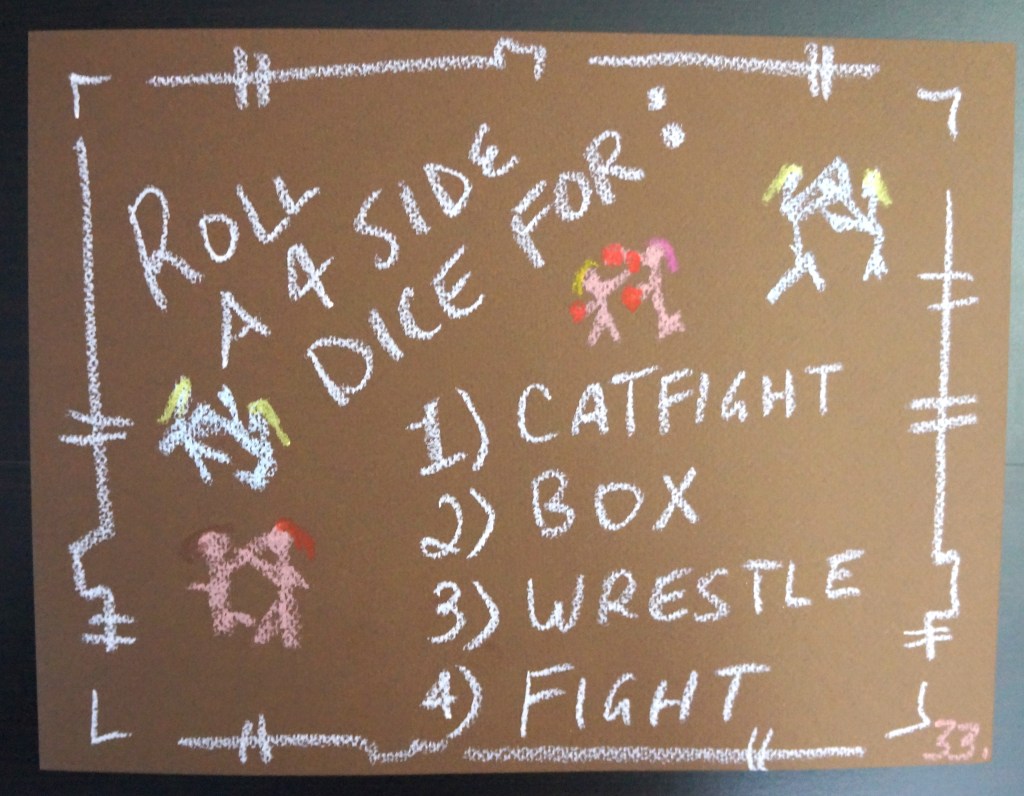 ROLL
A 4 SIDE
DICE FOR:
1) CATFIGHT
2) BOX
3) WRESTLE
4) FIGHT
33.